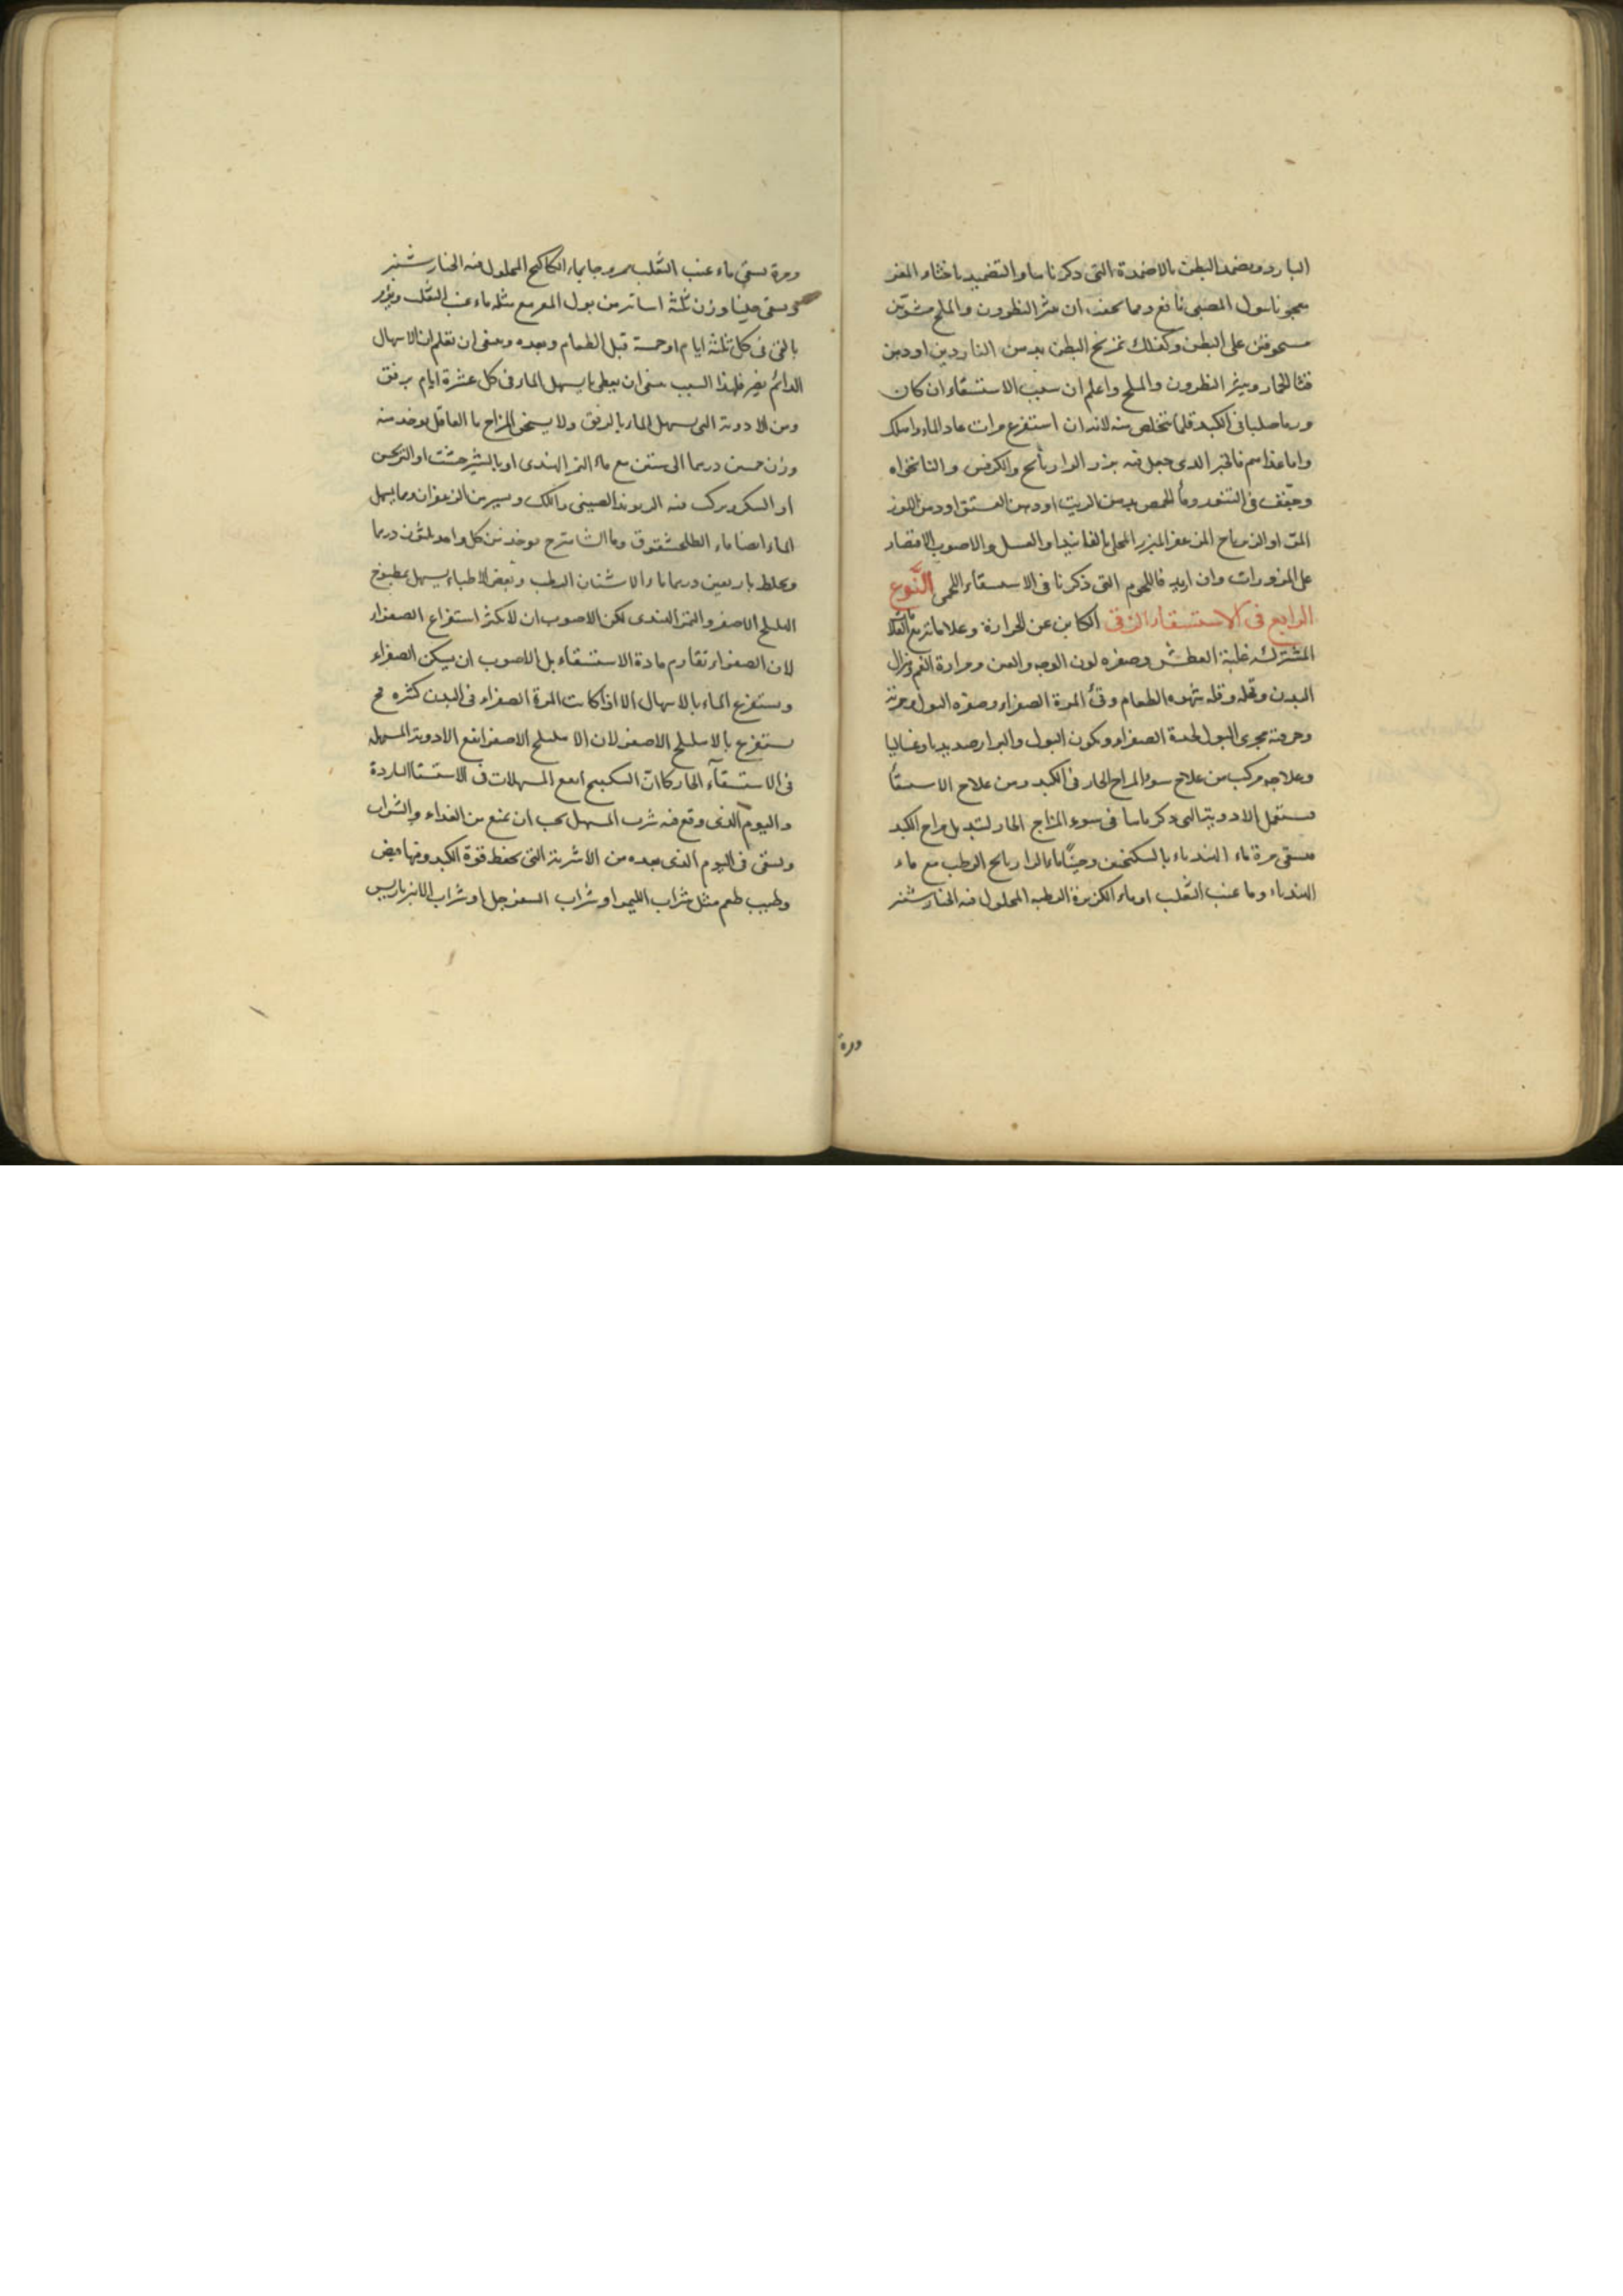 البارد ويضمد البطن بالاضمدة التى ذكرناها والتضميد باخثاء المعز
معجونا ببول الصبى نافع ومما يجففه ان ينثر النطرون والملح مشويين
مسحوقين على البطن وكذلك تمريخ البطن بدهن الناردين او دهن
قثا الحمار وينثر النطرون والملح واعلم ان سبب الاستسقاء ان كان
ورما صلبا فى الكبد قلما يتخلص منه لانه ان استفرغ مرات عاد الماء واهلك
واما غذاءهم فالخبز الذى جعل فيه بزر الرازيانج والكرفس والنانخواه
وجفف فى التنور وماء الحمص بدهن الزيت او دهن الفستق او دهن اللوز
المر او الزيرباج المزعفر المبزر المحلى بالفانيذ او العسل والاصوب الاقتصار
على المزورات وان اريد فاللحوم التى ذكرنا فى الاستسقاء اللحمى النَّوع
الرابع فى الاستسقاء الزقى الكاين عن الحرارة وعلاماته مع العلامات
المشتركة غلبة العطش وصفرة لون الوجه والعين ومرارة الفم وهزال
البدن وقحله وقلة شهوة الطعام وقئ المرة الصفراء وصفرة البول وحمرته
وحرقة مجرى البول لحدة الصفراء ويكون البول والبراز صديديا وغساليا
وعلاجه مركب من علاج سوء المزاج الحار فى الكبد ومن علاج الاستسقأ
فيستعمل الادوية التى ذكرناها فى سوء المزاج الحار لتبديل مزاج الكبد
فيسقى مرة ماء الهندباء بالسكنجبين وحينًا ماء الرازيانج الرطب مع ماء
الهندباء وماء عنب الثعلب او ماء الكزبرة الرطبة المحلول فيه الخيارشنبر
ومرة
ومرة يسقى ماء عنب الثعلب ممزوجا بماء الكاكنج المحلول فيه الخيارشنبر
ويسقى حينا وزن ثلثة اساتر من بول المعز مع مثله ماء عنب الثعلب ويؤمر
بالقئ فى كل ثلثة ايام او خمسة قبل الطعام وبعده وينبغى ان تعلم ان الاسهال
الدائم يضر فلهذا السبب ينبغى ان يعطى ما يسهل الماء فى كل عشرة ايام برفق
ومن الادوية التى يسهل الماء بالرفق ولا يسخن المزاج ما القاقلى يوخذ منه
وزن خمسين درهما الى ستين مع ماء التمر الهندى او بالشيرخشت او الترنجبين
او السكر ويمرس فيه الريوند الصينى واللك ويسير من الزعفران ومما يسهل
الماء ايضا ماء الطلحشقوق وماء الشاهترج يوخذ من كل واحد ثلثون درهما
ويخلط باربعين درهما ماء الاشنان الرطب وبعض الاطباء يسهل بمطبوخ
الهليلج الاصفر والتمر الهندى لكن الاصوب ان لا يكثر استفراغ الصفراء
لان الصفراء تقاوم مادة الاستسقاء بل الاصوب ان يسكن الصفراء
ويستفرغ الماء بالاسهال الا اذا كانت المرة الصفراء فى البدن كثيرة فح
يستفرغ بالاهليلج الاصفر لان الاهليلج الاصفر انفع الادوية المسهلة
فى الاستسقآء الحار كما انّ السكبينج انفع المسهلات فى الاستسقا الباردة
واليوم الذى وقع فيه شرب المسهل يجب ان يمنع من الغداء والشراب
ويسقى فى اليوم الذى بعده من الاشربة التى يحفظ قوة الكبد وفيها قبض
وطيب طعم مثل شراب الليمو او شراب السفرجل او شراب الانبرباريس